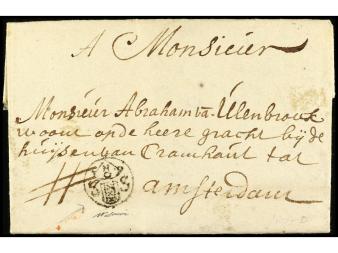 A Monsieur
Monsieur Abraham va. Ulenbrouk
woont op de heere gracht bij de
huijsen van Cramhout tot
amsterdam